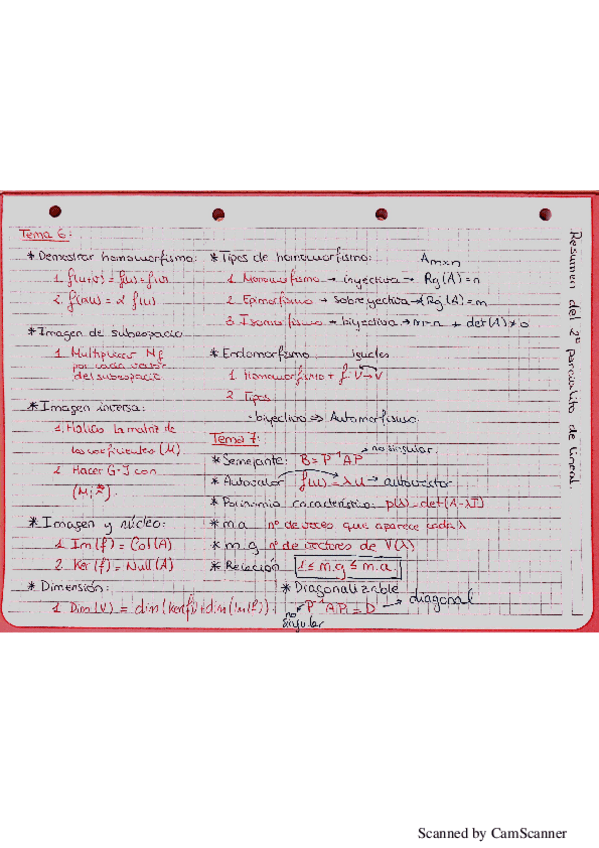 Resumen del 2º parcialito de lineal.
Tema 6:
* Demostrar homomorfismo:
1. f(u+v) = f(u)+f(v)
2. f(αu) = α f(u)
* Imagen de subespacio
1. Multiplicar Mf
por cada vector
del subespacio
* Imagen inversa:
1. Hallar la matriz de
los coeficientes (M)
2. Hacer G-J con
* Imagen y núcleo:
1. Im(f) = Col(A)
2. Ker(f) = Null(A)
* Dimensión:
1. Dim(V) = dim(Ker(f)) + dim(Im(f))
* Tipos de homomorfismo: Amxn
1. Monomorfismo → inyectiva → Rg(A)=n
2. Epimorfismo → sobreyectiva → Rg(A)=m
3. Isomorfismo → biyectiva → m=n + det(A)≠0
* Endomorfismo iguales
1. Homomorfismo + f: V→V
2. Tipos
- biyectivo => Automorfismo
Tema 7:
* Semejante: B = P⁻¹AP → no singular
* Autovalor f(u) = λu → autovector
* Polinomio característico: p(λ) = det(A-λI)
* m.a nº de veces que aparece cada λ
* m.g nº de vectores de V(λ)
* Relación 1 ≤ m.g ≤ m.a
* Diagonalizable
P⁻¹AP = D → diagonal
no
singular
Scanned by CamScanner